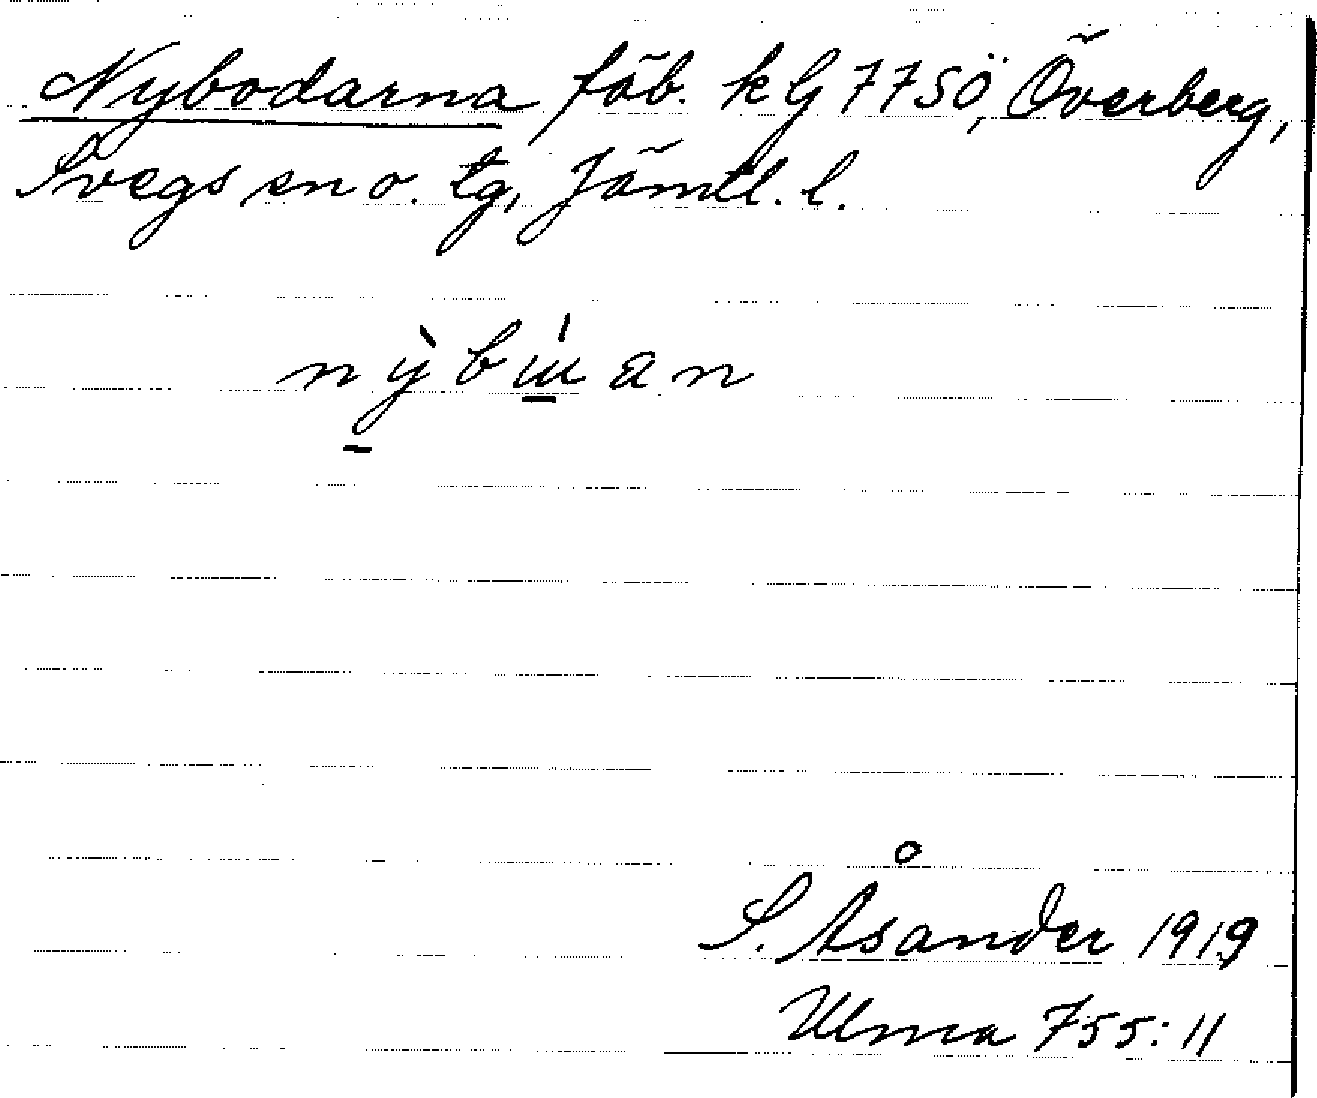 Nybodarna fäb. kG 7750, Överberg,
Svegs sn o. tg, Jämtl. l.
nỳbɯ́an
S. Åsander 1919
Ulma 755:11